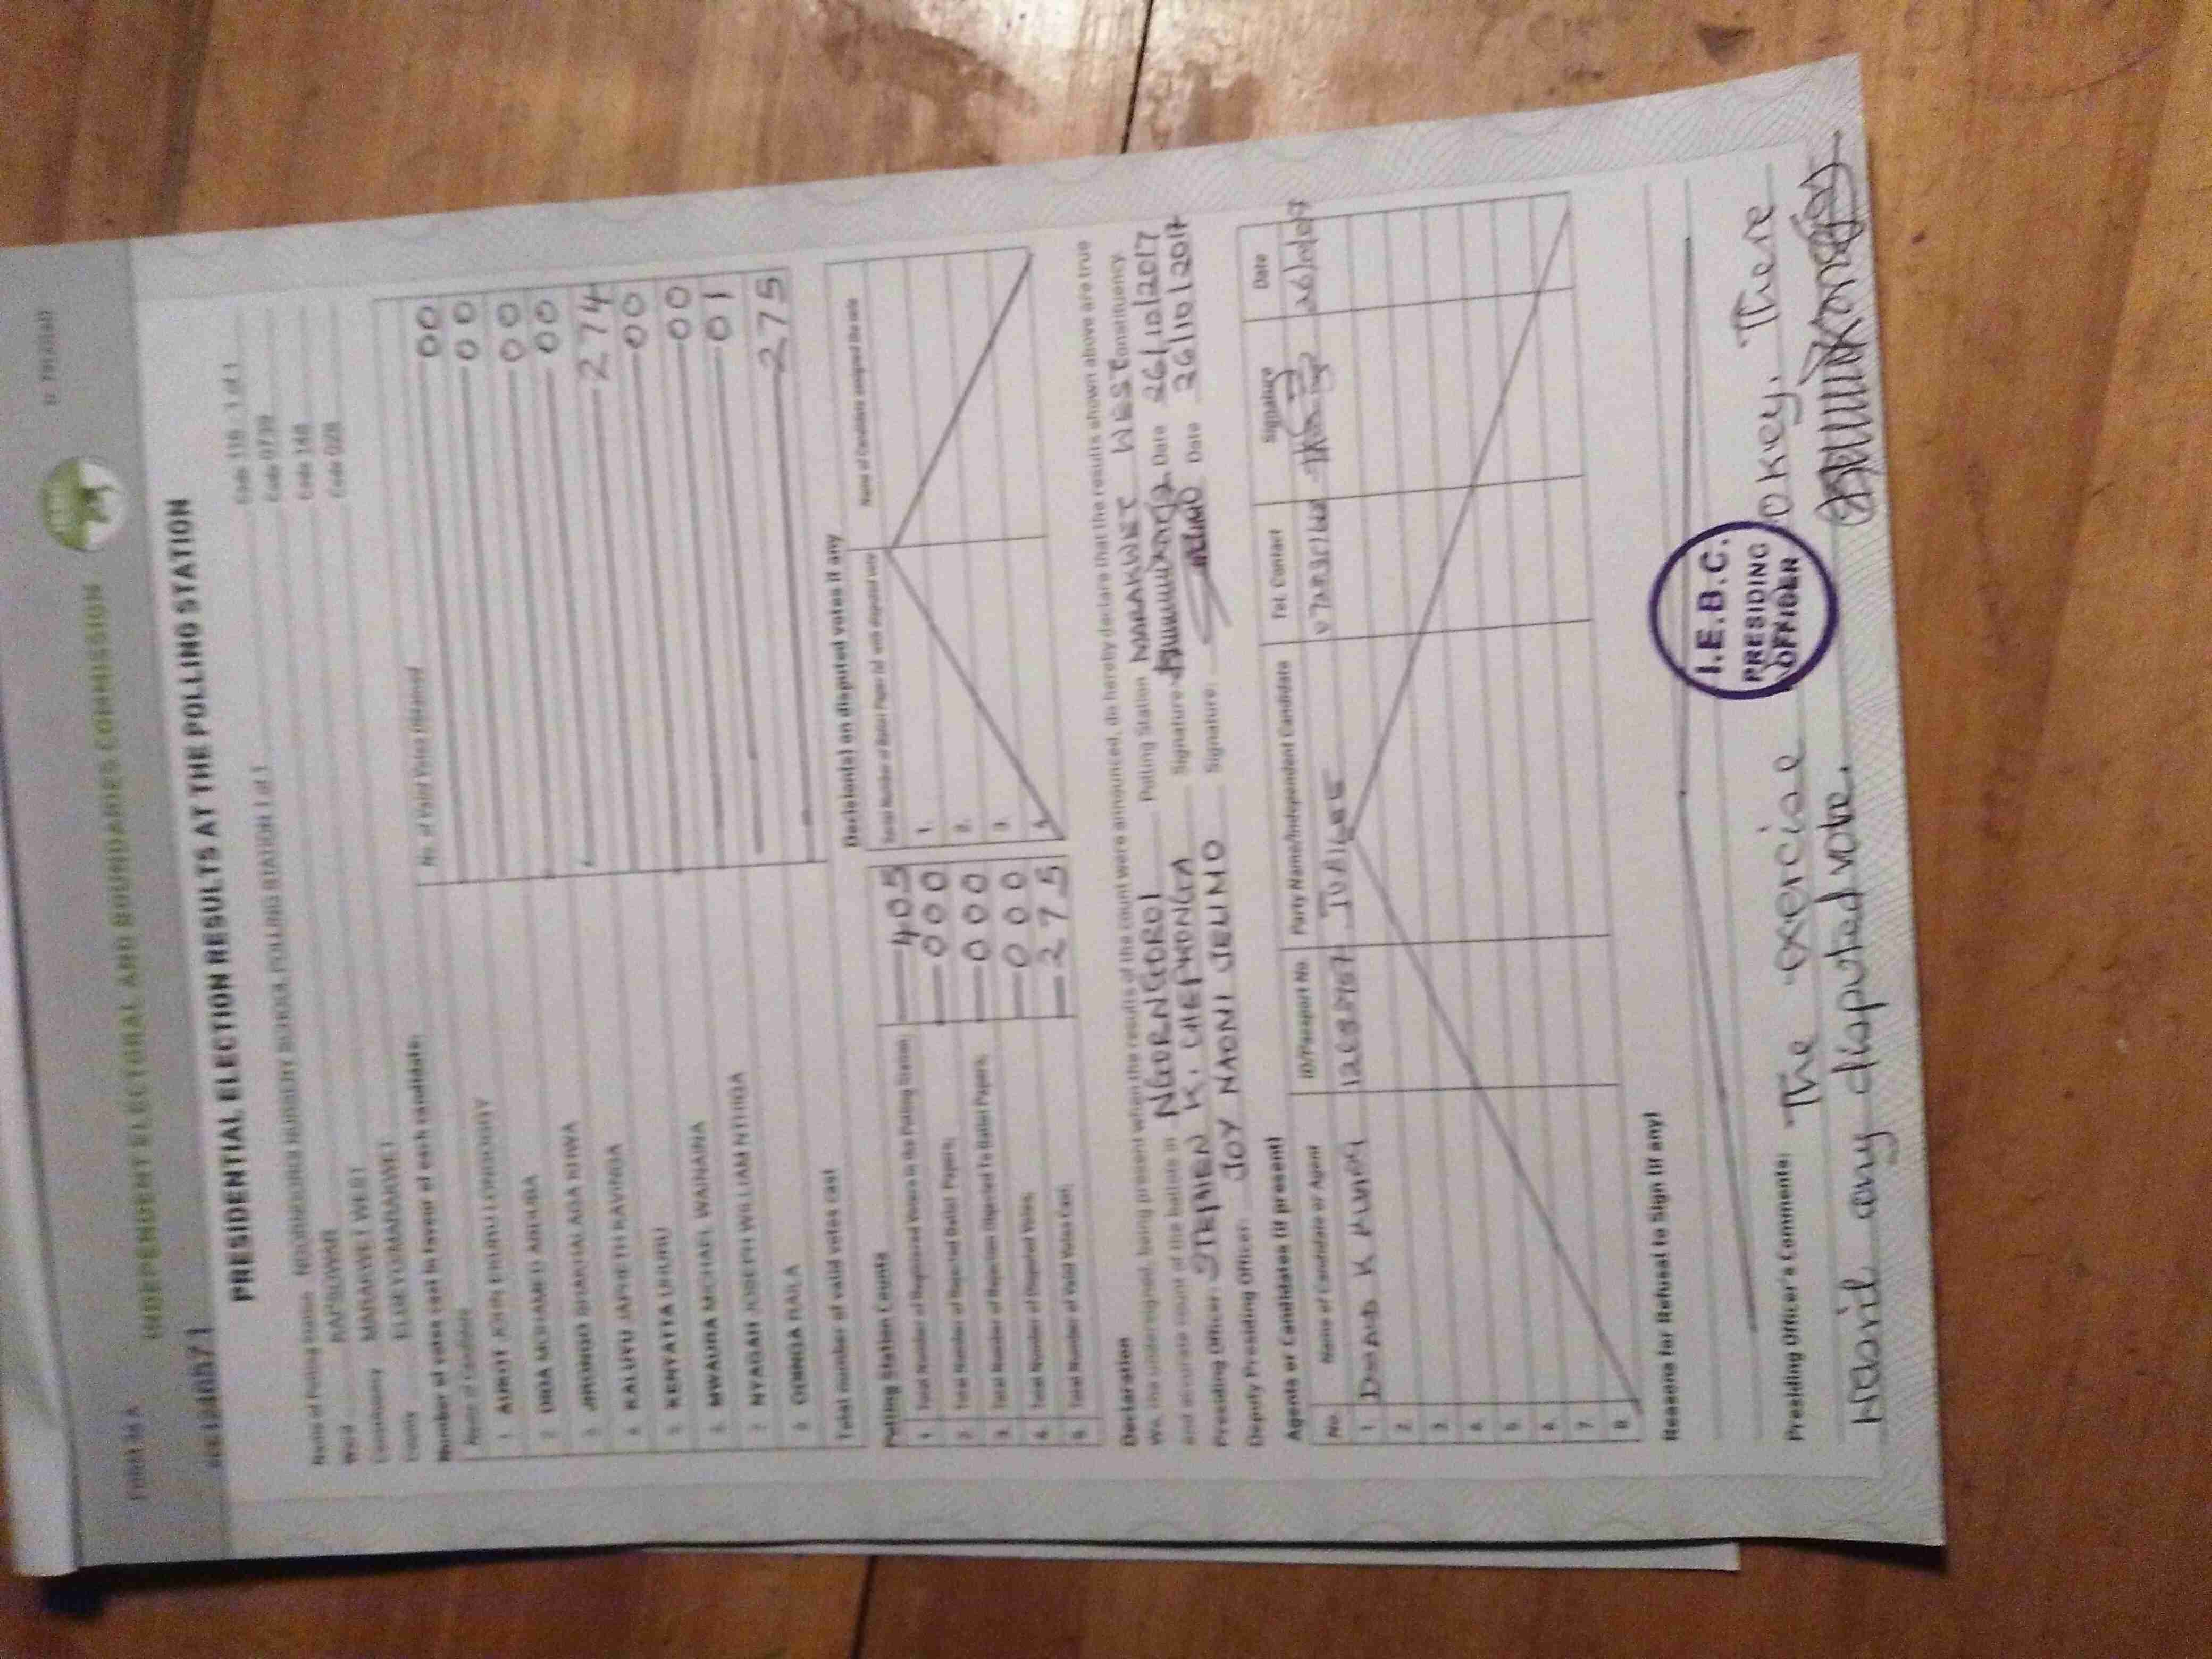 FORM 34 A
INDEPENDENT ELECTORAL AND BOUNDARIES COMMISSION
PRESIDENTIAL ELECTION RESULTS AT THE POLLING STATION
Name of Polling Station NURSERY SCHOOL POLLING STATION 1 of 1 Code 1 of 1
Ward KAPSOWAR Code 0739
Constituency MARAKWET WEST Code 148
County ELGEYO/MARAKWET Code 028
Number of votes cast in favour of each candidate:
Name of Candidate No. of Valid Votes Obtained
1 AUKOT JOHN EKURU LONGOGGY 00
2 DIDA MOHAMED ABDUBA 00
3 JIRONGO SHAKHALAGA KHWA 00
4 KALUYU JAPHETH KAVINGA 00
5 KENYATTA UHURU 274
6 MWAURA MICHAEL WAINAINA 00
7 NYAGAH JOSEPH WILLIAM NTHIGA 00
8 ODINGA RAILA 01
Total number of valid votes cast 275
Polling Station Counts
1. Total Number of Registered Voters in the Polling Station 405
2. Total Number of Rejected Ballot Papers 000
3. Total Number of Rejection Objected To Ballot Papers 000
4. Total Number of Disputed Votes 000
5. Total Number of Valid Votes Cast 275
Decision(s) on disputed votes if any
1.
2.
3.
4.
Declaration
We, the undersigned, being present when the results of the count were announced, do hereby declare that the results shown above are true
and accurate count of the ballots in Polling Station MARAKWET WEST Constituency.
Presiding Officer: STEPHEN K. CHEPKONGA Signature: Date 26/10/2017
Deputy Presiding Officer: JOY NAOMI JELIMO Signature: Date 26/10/2017
Agents or Candidates (if present)
No. Name of Candidate or Agent ID/Passport No. Party Name/Independent Candidate Tel. Contact Signature Date
1 JUBILEE
2
3
4
5
6
7
8
Reasons for Refusal to Sign (if any)
I.E.B.C.
PRESIDING
OFFICER
Presiding Officer's Comments: The exercise okey. There
any disputed vote.